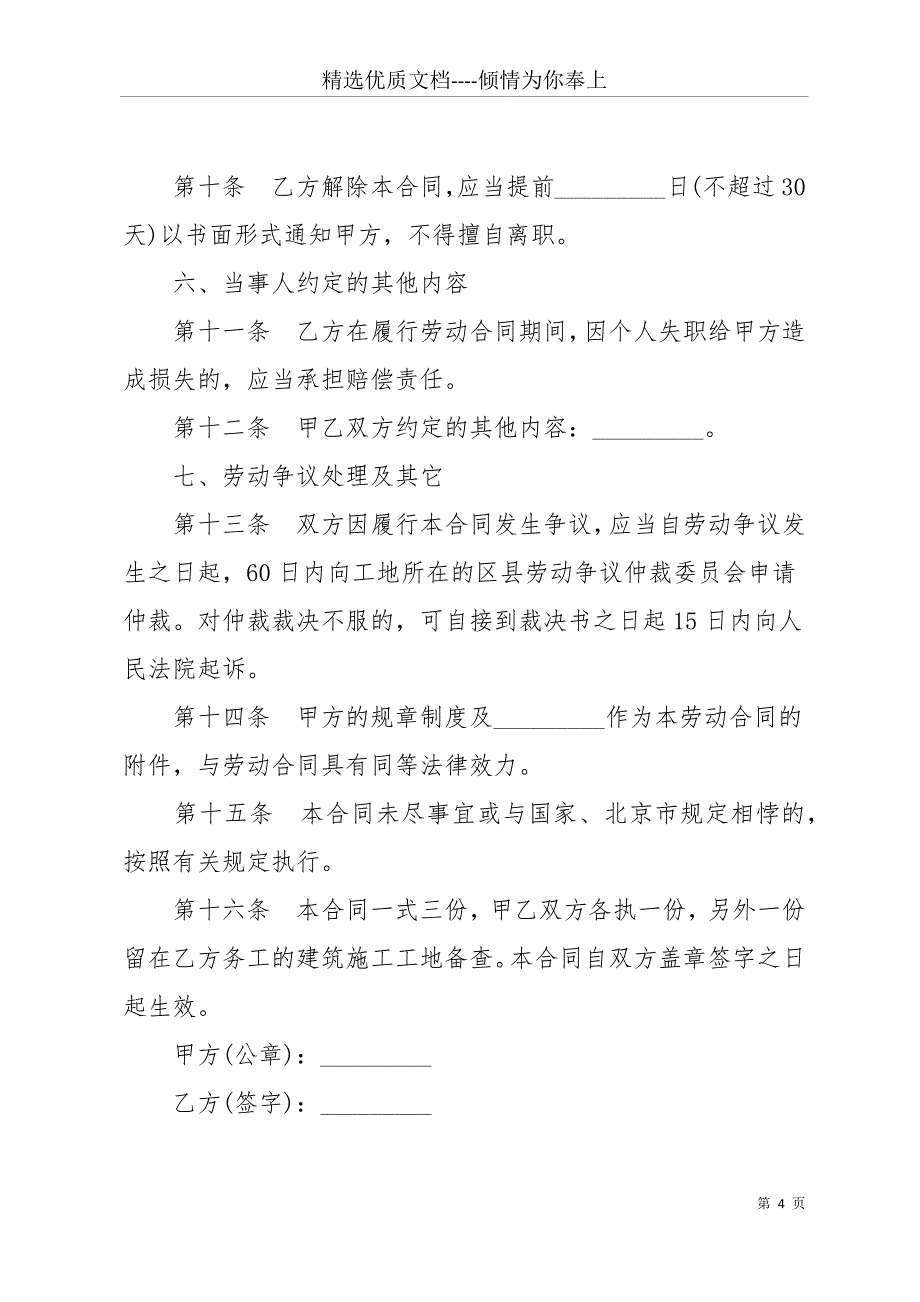 精选优质文档----倾情为你奉上
第十条　乙方解除本合同,应当提前_________日(不超过30
天)以书面形式通知甲方，不得擅自离职。
六、当事人约定的其他内容
第十一条　乙方在履行劳动合同期间,因个人失职给甲方造
成损失的，应当承担赔偿责任。
第十二条　甲乙双方约定的其他内容：_________。
七、劳动争议处理及其它
第十三条　双方因履行本合同发生争议,应当自劳动争议发
生之日起，60日内向工地所在的区县劳动争议仲裁委员会申请
仲裁。对仲裁裁决不服的，可自接到裁决书之日起15日内向人
民法院起诉。
第十四条　甲方的规章制度及_________作为本劳动合同的
附件，与劳动合同具有同等法律效力。
第十五条　本合同未尽事宜或与国家、北京市规定相悖的，
按照有关规定执行。
第十六条　本合同一式三份,甲乙双方各执一份,另外一份
留在乙方务工的建筑施工工地备查。本合同自双方盖章签字之日
起生效。
甲方(公章)：_________
乙方(签字)：_________
第 4 页